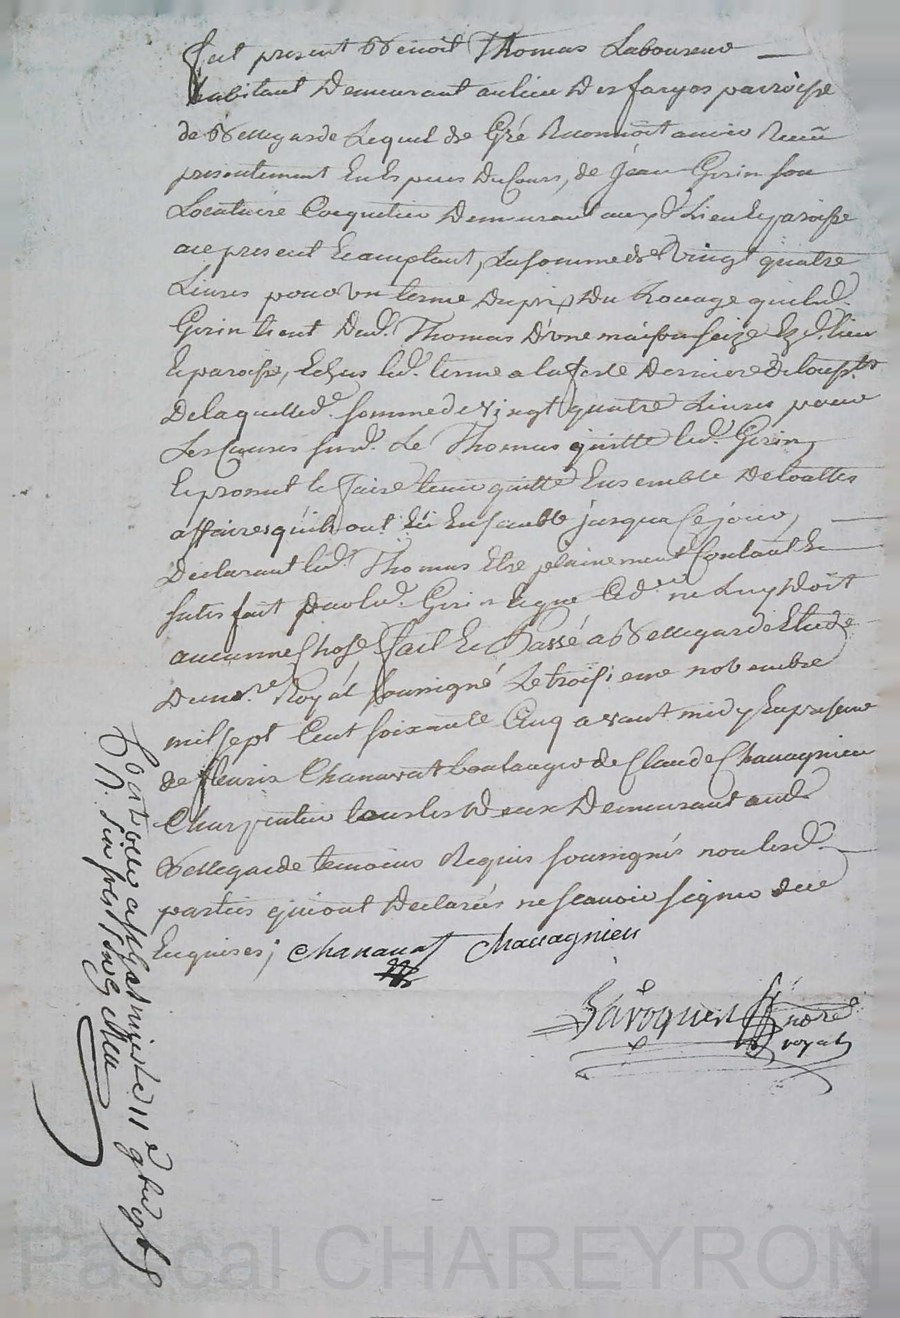 fut present Benoit Thomas Laboureur
habitant Demeurant au lieu Des farges parroisse
de Bellegarde Lequel de Gré Reconnoit avoir Receu
presentement En Espèces Du Cours, de Jean Girin son
Locataire Coquetier Demeurant auxd. Lieu Et paroisse
ace present Et acceptant, La somme de Vingt quatre
Livres pour Un terme Du prix Du Louage que led.
Girin tient Dud. Thomas D'une maison seize Ezd. lieu
Et paroisse, Echus led. terme a la feste Derniere De
De laquelle d. somme de vingt quatre Livres pour
Les Causes susd. Le Thomas quitte led. Girin
Et promet le faire tenir quitte Ensemble De touttes
affaires qu'ils ont Eü Ensemble jusqua Ce jour,
Declarant led. Thomas Etre plainement Contant Et
satisfait par led. Girin Et que Led. ne Luy Doit
aucunne Chose fait Et Passé a Bellegarde Etude
Du no.re Royal soussigné Le troisieme novembre
mil sept Cent soixante Cinq avant midy En presence
de fleurie Chanavat boulanger de Claude Chavagnieu
Charpentier tous les Deux Demeurant aud.
Bellegarde temoins Requis soussignés non lesd.
parties qui ont Declarées ne scavoir signer de ce
Enquises;
Chanavat Chavagnieu
no.re
royal
Pascal CHAREYRON